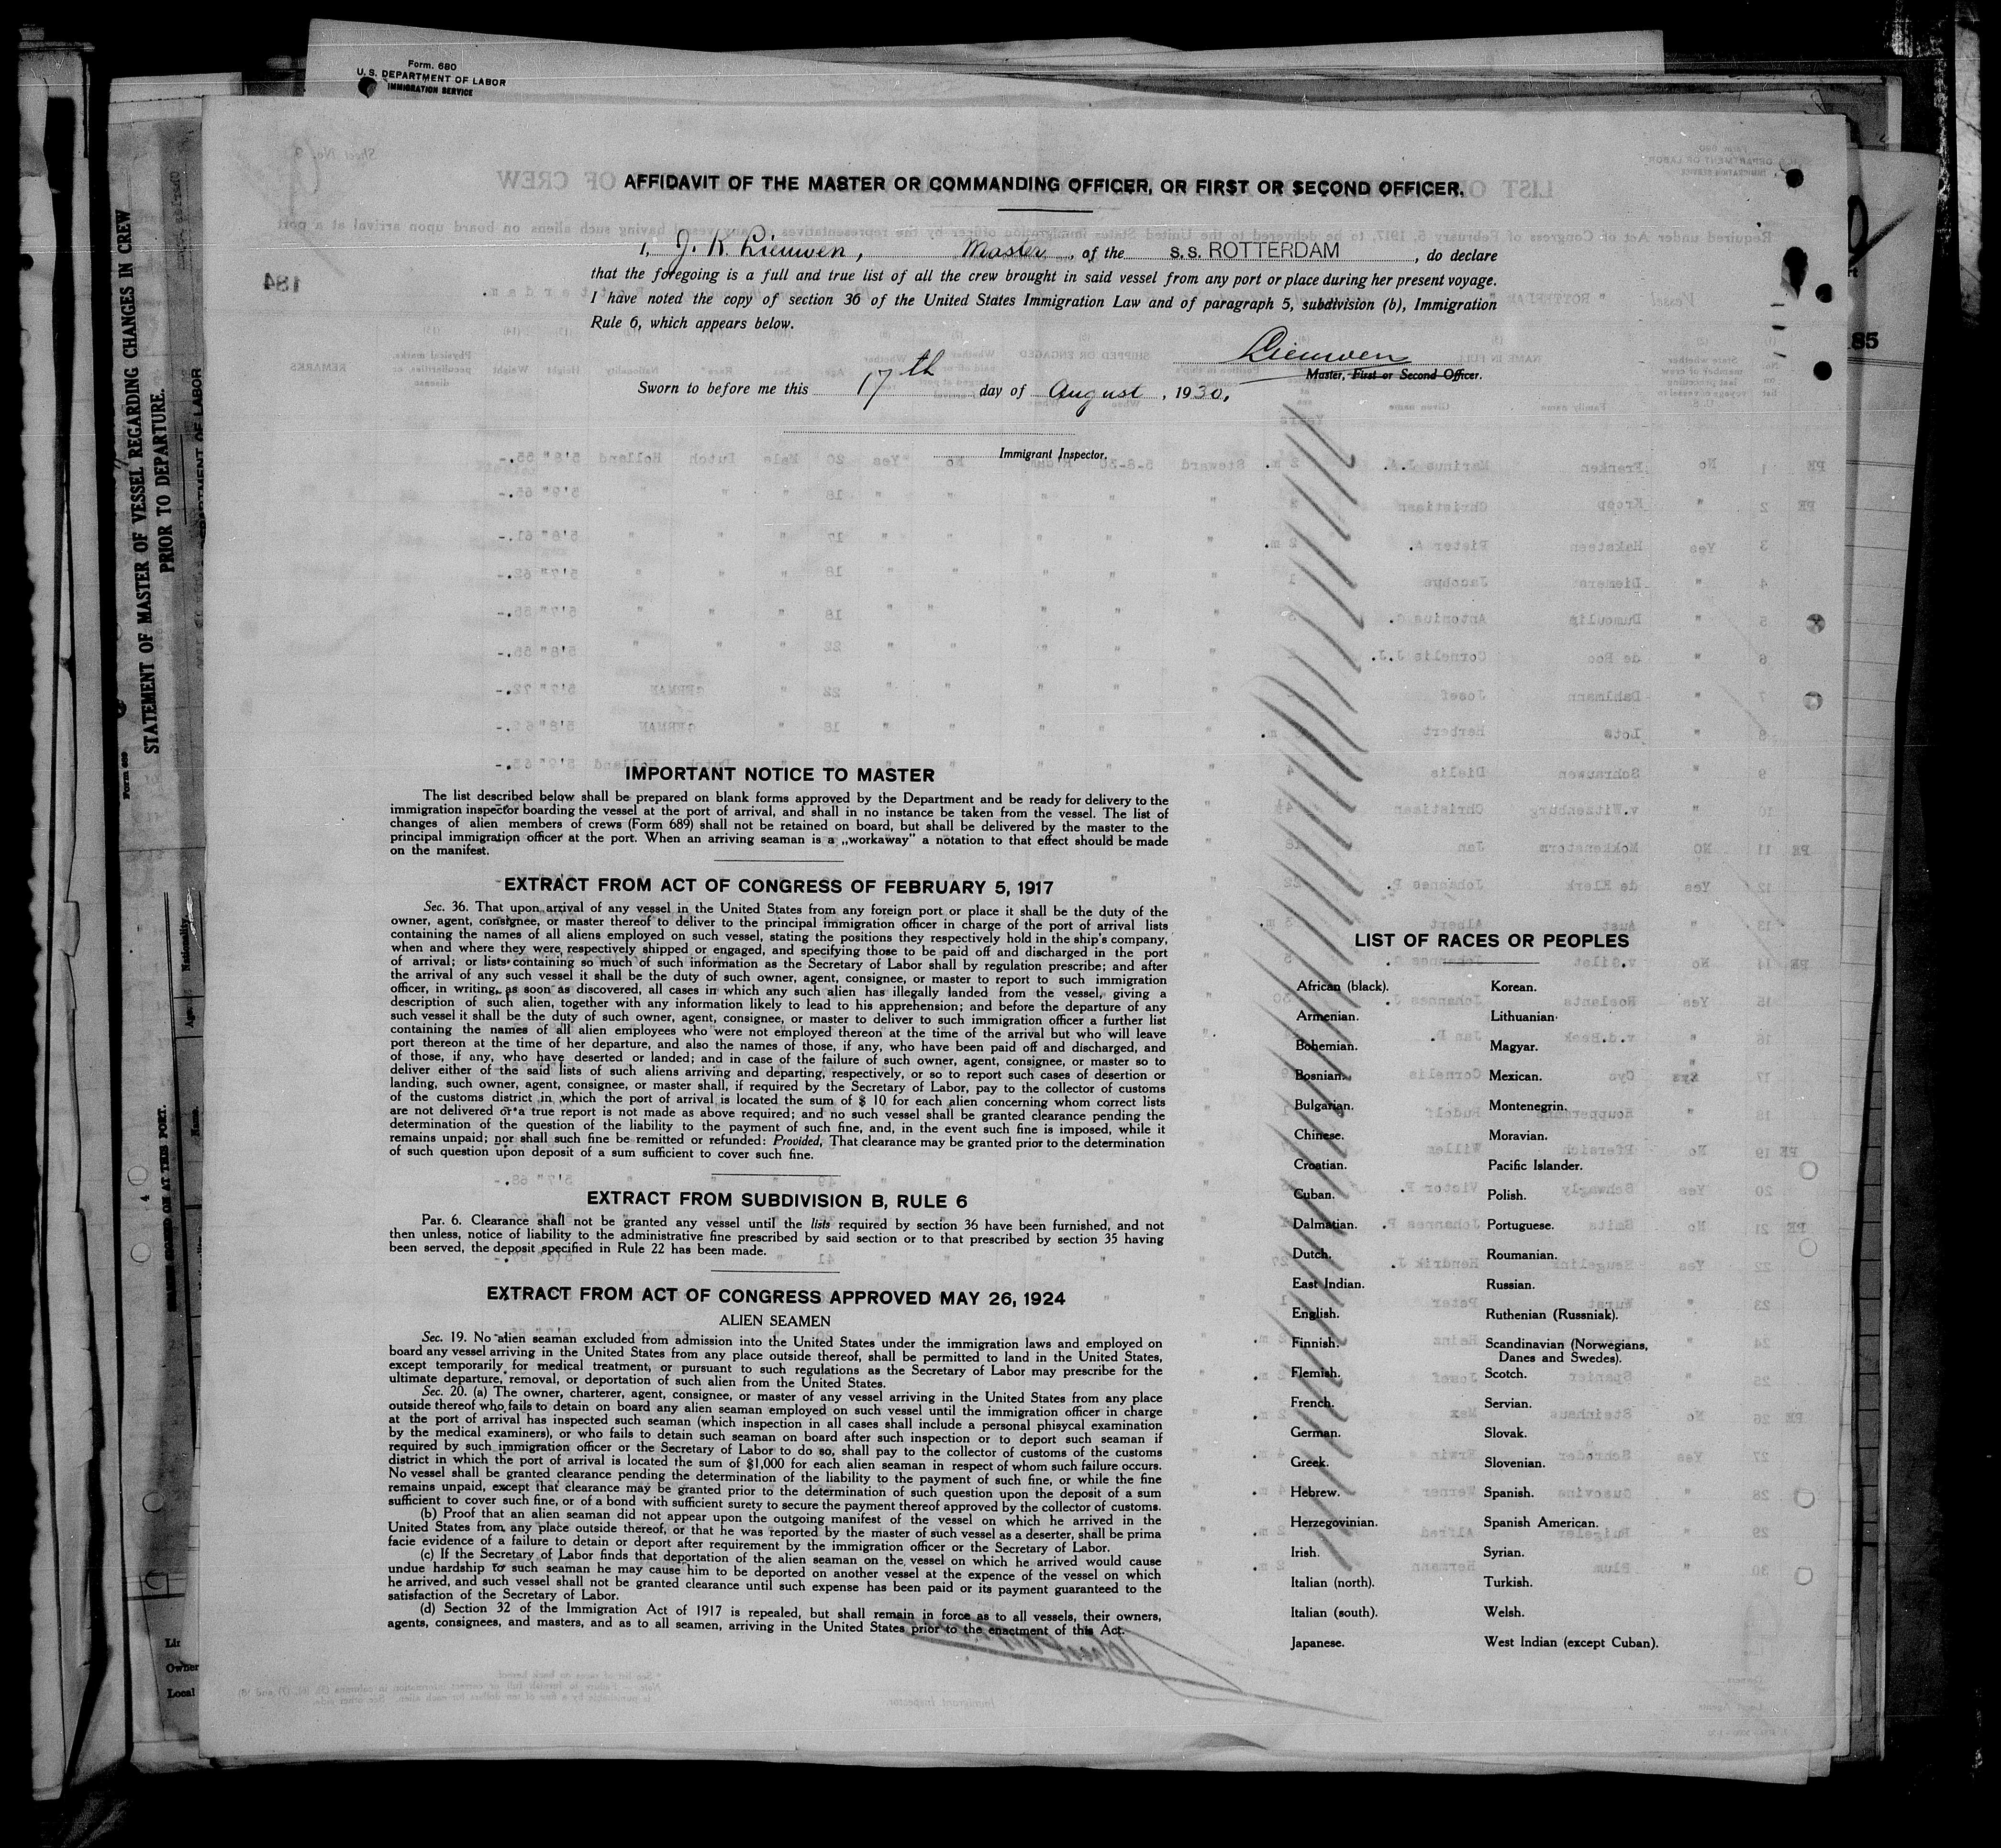 Form. 680
U. S. DEPARTMENT OF LABOR
IMMIGRATION SERVICE
STATEMENT OF MASTER OF VESSEL REGARDING CHANGES IN CREW
PRIOR TO DEPARTURE.
AFFIDAVIT OF THE MASTER OR COMMANDING OFFICER, OR FIRST OR SECOND OFFICER.
I, J. K. Lieuwen, Master, of the S.S. ROTTERDAM, do declare
that the foregoing is a full and true list of all the crew brought in said vessel from any port or place during her present voyage.
I have noted the copy of section 36 of the United States Immigration Law and of paragraph 5, subdivision (b), Immigration
Rule 6, which appears below.
Lieuwen
Master, First or Second Officer.
Sworn to before me this 17th day of August, 1930.
Immigrant Inspector.
85
IMPORTANT NOTICE TO MASTER
The list described below shall be prepared on blank forms approved by the Department and be ready for delivery to the
immigration inspector boarding the vessel at the port of arrival, and shall in no instance be taken from the vessel. The list of
changes of alien members of crews (Form 689) shall not be retained on board, but shall be delivered by the master to the
principal immigration officer at the port. When an arriving seaman is a „workaway" a notation to that effect should be made
on the manifest.
EXTRACT FROM ACT OF CONGRESS OF FEBRUARY 5, 1917
Sec. 36. That upon arrival of any vessel in the United States from any foreign port or place it shall be the duty of the
owner, agent, consignee, or master thereof to deliver to the principal immigration officer in charge of the port of arrival lists
containing the names of all aliens employed on such vessel, stating the positions they respectively hold in the ship's company,
when and where they were respectively shipped or engaged, and specifying those to be paid off and discharged in the port
of arrival; or lists containing so much of such information as the Secretary of Labor shall by regulation prescribe; and after
the arrival of any such vessel it shall be the duty of such owner, agent, consignee, or master to report to such immigration
officer, in writing, as soon as discovered, all cases in which any such alien has illegally landed from the vessel, giving a
description of such alien, together with any information likely to lead to his apprehension; and before the departure of any
such vessel it shall be the duty of such owner, agent, consignee, or master to deliver to such immigration officer a further list
containing the names of all alien employees who were not employed thereon at the time of the arrival but who will leave
port thereon at the time of her departure, and also the names of those, if any, who have been paid off and discharged, and
of those, if any, who have deserted or landed; and in case of the failure of such owner, agent, consignee, or master so to
deliver either of the said lists of such aliens arriving and departing, respectively, or so to report such cases of desertion or
landing, such owner, agent, consignee, or master shall, if required by the Secretary of Labor, pay to the collector of customs
of the customs district in which the port of arrival is located the sum of $ 10 for each alien concerning whom correct lists
are not delivered or a true report is not made as above required; and no such vessel shall be granted clearance pending the
determination of the question of the liability to the payment of such fine, and, in the event such fine is imposed, while it
remains unpaid; nor shall such fine be remitted or refunded: Provided, That clearance may be granted prior to the determination
of such question upon deposit of a sum sufficient to cover such fine.
EXTRACT FROM SUBDIVISION B, RULE 6
Par. 6. Clearance shall not be granted any vessel until the lists required by section 36 have been furnished, and not
then unless, notice of liability to the administrative fine prescribed by said section or to that prescribed by section 35 having
been served, the deposit specified in Rule 22 has been made.
EXTRACT FROM ACT OF CONGRESS APPROVED MAY 26, 1924
ALIEN SEAMEN
Sec. 19. No alien seaman excluded from admission into the United States under the immigration laws and employed on
board any vessel arriving in the United States from any place outside thereof, shall be permitted to land in the United States,
except temporarily for medical treatment, or pursuant to such regulations as the Secretary of Labor may prescribe for the
ultimate departure, removal, or deportation of such alien from the United States.
Sec. 20. (a) The owner, charterer, agent, consignee, or master of any vessel arriving in the United States from any place
outside thereof who fails to detain on board any alien seaman employed on such vessel until the immigration officer in charge
at the port of arrival has inspected such seaman (which inspection in all cases shall include a personal phisycal examination
by the medical examiners), or who fails to detain such seaman on board after such inspection or to deport such seaman if
required by such immigration officer or the Secretary of Labor to do so, shall pay to the collector of customs of the customs
district in which the port of arrival is located the sum of $1,000 for each alien seaman in respect of whom such failure occurs.
No vessel shall be granted clearance pending the determination of the liability to the payment of such fine, or while the fine
remains unpaid, except that clearance may be granted prior to the determination of such question upon the deposit of a sum
sufficient to cover such fine, or of a bond with sufficient surety to secure the payment thereof approved by the collector of customs.
(b) Proof that an alien seaman did not appear upon the outgoing manifest of the vessel on which he arrived in the
United States from any place outside thereof, or that he was reported by the master of such vessel as a deserter, shall be prima
facie evidence of a failure to detain or deport after requirement by the immigration officer or the Secretary of Labor.
(c) If the Secretary of Labor finds that deportation of the alien seaman on the vessel on which he arrived would cause
undue hardship to such seaman he may cause him to be deported on another vessel at the expence of the vessel on which
he arrived, and such vessel shall not be granted clearance until such expense has been paid or its payment guaranteed to the
satisfaction of the Secretary of Labor.
(d) Section 32 of the Immigration Act of 1917 is repealed, but shall remain in force as to all vessels, their owners,
agents, consignees, and masters, and as to all seamen, arriving in the United States prior to the enactment of this Act.
LIST OF RACES OR PEOPLES
African (black). Korean.
Armenian. Lithuanian.
Bohemian. Magyar.
Bosnian. Mexican.
Bulgarian. Montenegrin.
Chinese. Moravian.
Croatian. Pacific Islander.
Cuban. Polish.
Dalmatian. Portuguese.
Dutch. Roumanian.
East Indian. Russian.
English. Ruthenian (Russniak).
Finnish. Scandinavian (Norwegians,
Danes and Swedes).
Flemish. Scotch.
French. Servian.
German. Slovak.
Greek. Slovenian.
Hebrew. Spanish.
Herzegovinian. Spanish American.
Irish. Syrian.
Italian (north). Turkish.
Italian (south). Welsh.
Japanese. West Indian (except Cuban).